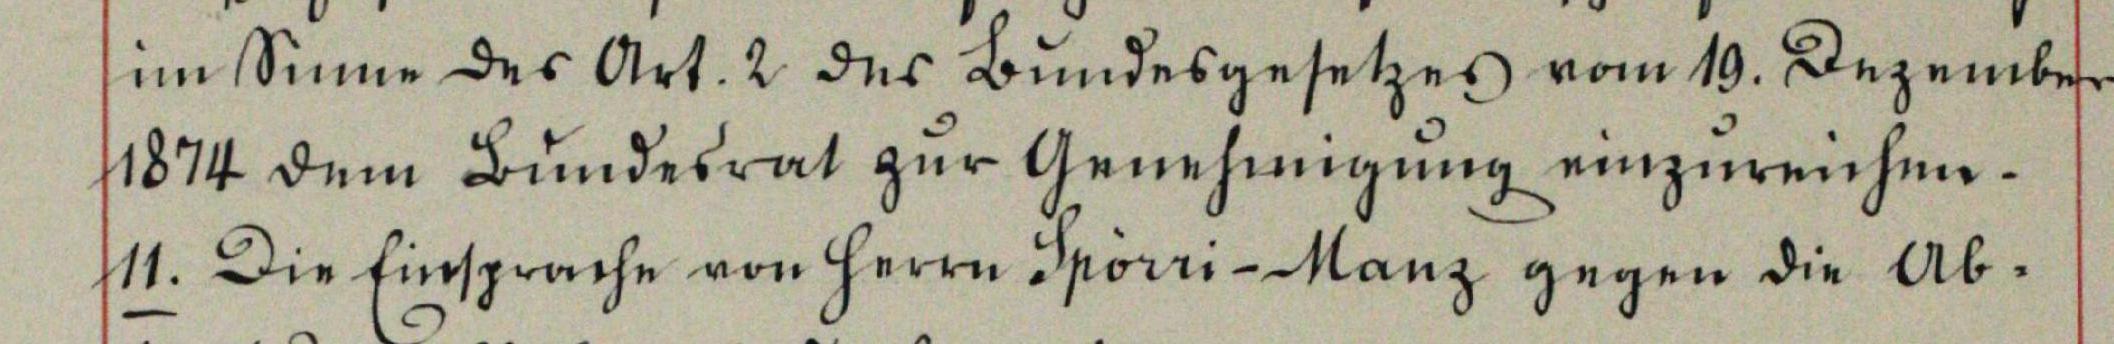 im Sinne des Art. 2 des Bundesgesetzes vom 19. Dezember
1874 dem Bundesrat zur Genehmigung einzureichen.
11. Die Einsprache von Herrn Spörri-Manz gegen die Ab-